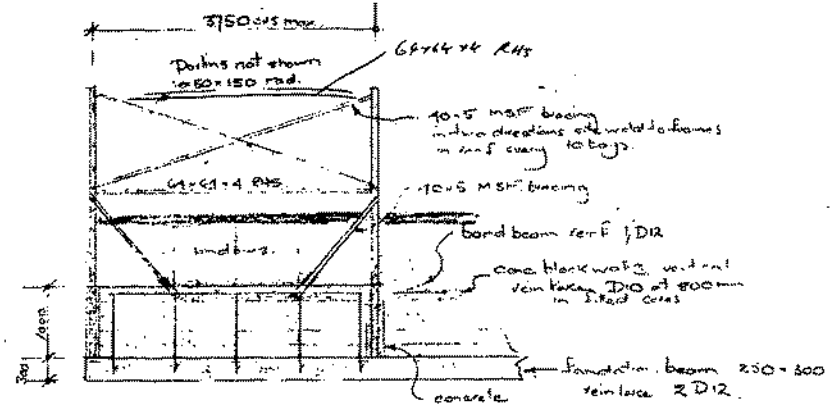 3750 crs max.
64x64x4 RHS
Purlins not shown
150 rad.
40.5 MSF bracing
in two directions site weld to frames
in roof every 10 bays.
64x64x4 RHS
40.5 MSF bracing
bond beam reinf 1, D12
conc blockwork vertical
D10 at 800mm
in filled cores
1000
300
foundation beam 250 x 300
reinforce 2 D12.
concrete